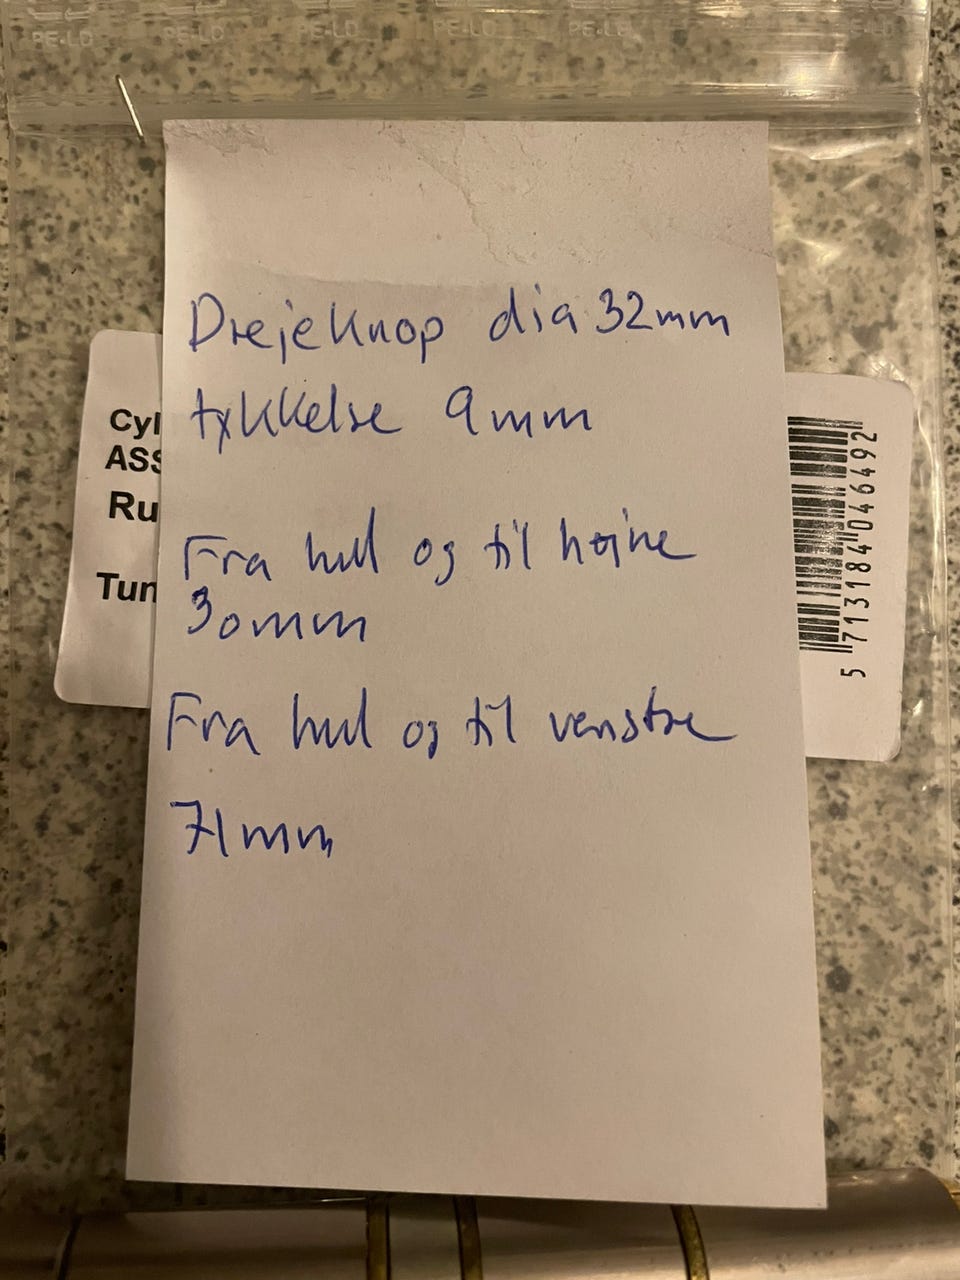 PE-LD PE-LD PE-LD PE-LD PE-LD PE-LD
Drejeknop dia 32mm
tykkelse 9mm
Fra hul og til højre
30mm
Fra hul og til venstre
71mm
Cyl
ASS
Ru
Tun
5 713184 046492